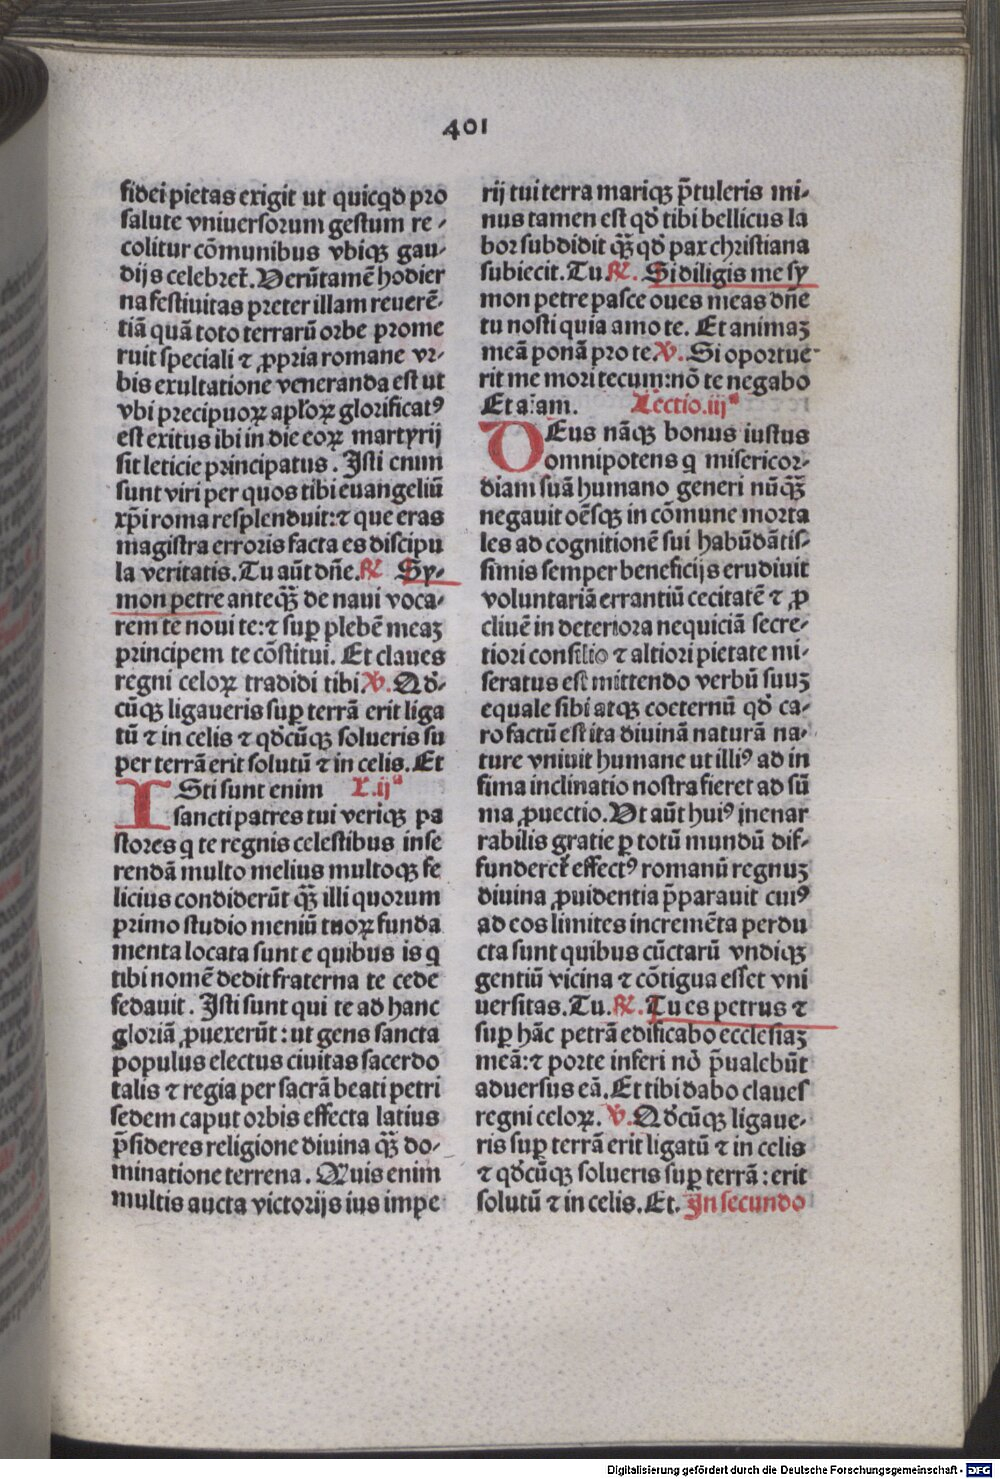 401
fidei pietas exigit ut quicqd pro
salute vniuersorum gestum re-
colitur cōmunibus vbiqꝫ gau-
dijs celebret̃. Uerūtamē hodier
na festiuitas preter illam reuerē-
tiā quā toto terrarū orbe prome
ruit speciali ⁊ ꝓpria romane vr-
bis exultatione veneranda est ut
vbi precipuoꝝ apl̃oꝝ glorificatꝰ
est exitus ibi in die eoꝝ martyrij
sit leticie principatus. Isti enim
sunt viri per quos tibi euangeliū
xp̄i roma resplenduit:⁊ que eras
magistra erroris facta es discipu
la veritatis. Tu aūt dn̄e. ℟ Sy-
mon petre anteqꝫ̄ de naui voca-
rem te noui te:⁊ suꝑ plebē meaꝫ
principem te cōstitui. Et claues
regni celoꝝ tradidi tibi ℣. Qd̄-
cūqꝫ ligaueris suꝑ terrā erit liga
tū ⁊ in celis ⁊ qd̄cūqꝫ solueris su
per terrā erit solutū ⁊ in celis. Et
ISti sunt enim L.ijᵃ
sancti patres tui veriqꝫ pa
stores q te regnis celestibus inse
rendā multo melius multoqꝫ fe
licius condiderūt qꝫ̄ illi quorum
primo studio meniū tuoꝝ funda
menta locata sunt e quibus is q
tibi nomē dedit fraterna te cede
fedauit. Isti sunt qui te ad hanc
gloriā ꝓuexerūt: ut gens sancta
populus electus ciuitas sacerdo
talis ⁊ regia per sacrā beati petri
sedem caput orbis effecta latius
p̄sideres religione diuina qꝫ̄ do-
minatione terrena. Quis enim
multis aucta victorijs ius impe
rij tui terra mariqꝫ p̄tuleris mi-
nus tamen est qd̄ tibi bellicus la
bor subdidit qꝫ̄ qd̄ pax christiana
subiecit. Tu. ℟. Si diligis me sy
mon petre pasce oues meas dn̄e
tu nosti quia amo te. Et animaꝫ
meā ponā pro te ℣. Si oportue-
rit me mori tecum:nō te negabo
Et a:am. Lectio.iijᵃ
DEus nāqꝫ bonus iustus
omnipotens q misericor-
diam suā humano generi nūqꝫ̄
negauit oēsqꝫ in cōmune morta
les ad cognitionē sui habūdātis-
simis semper beneficijs erudiuit
voluntariā errantiū cecitatē ⁊ ꝓ
cliuē in deteriora nequiciā secre-
tiori consilio ⁊ altiori pietate mi-
seratus est mittendo verbū suuꝫ
equale sibi atqꝫ coeternū qd̄ ca-
ro factū est ita diuinā naturā na-
ture vniuit humane ut illiꝰ ad in
fima inclinatio nostra fieret ad sū
ma ꝓuectio. Ut aūt huiꝰ inenar
rabilis gratie ꝑ totū mundū dif-
funderet̃ effectꝰ romanū regnuꝫ
diuina ꝓuidentia p̄parauit cuiꝰ
ad eos limites incremēta perdu
cta sunt quibus cūctarū vndiqꝫ
gentiū vicina ⁊ cōtigua esset vni
uersitas. Tu. ℟. Tu es petrus ⁊
suꝑ hāc petrā edificabo ecclesiaꝫ
meā:⁊ porte inferi nō p̄ualebūt
aduersus eā. Et tibi dabo claues
regni celoꝝ. ℣. Qd̄cūqꝫ ligaue-
ris suꝑ terrā erit ligatū ⁊ in celis
⁊ qd̄cūqꝫ solueris suꝑ terrā: erit
solutū ⁊ in celis. Et. In secundo
Digitalisierung gefördert durch die Deutsche Forschungsgemeinschaft - DFG